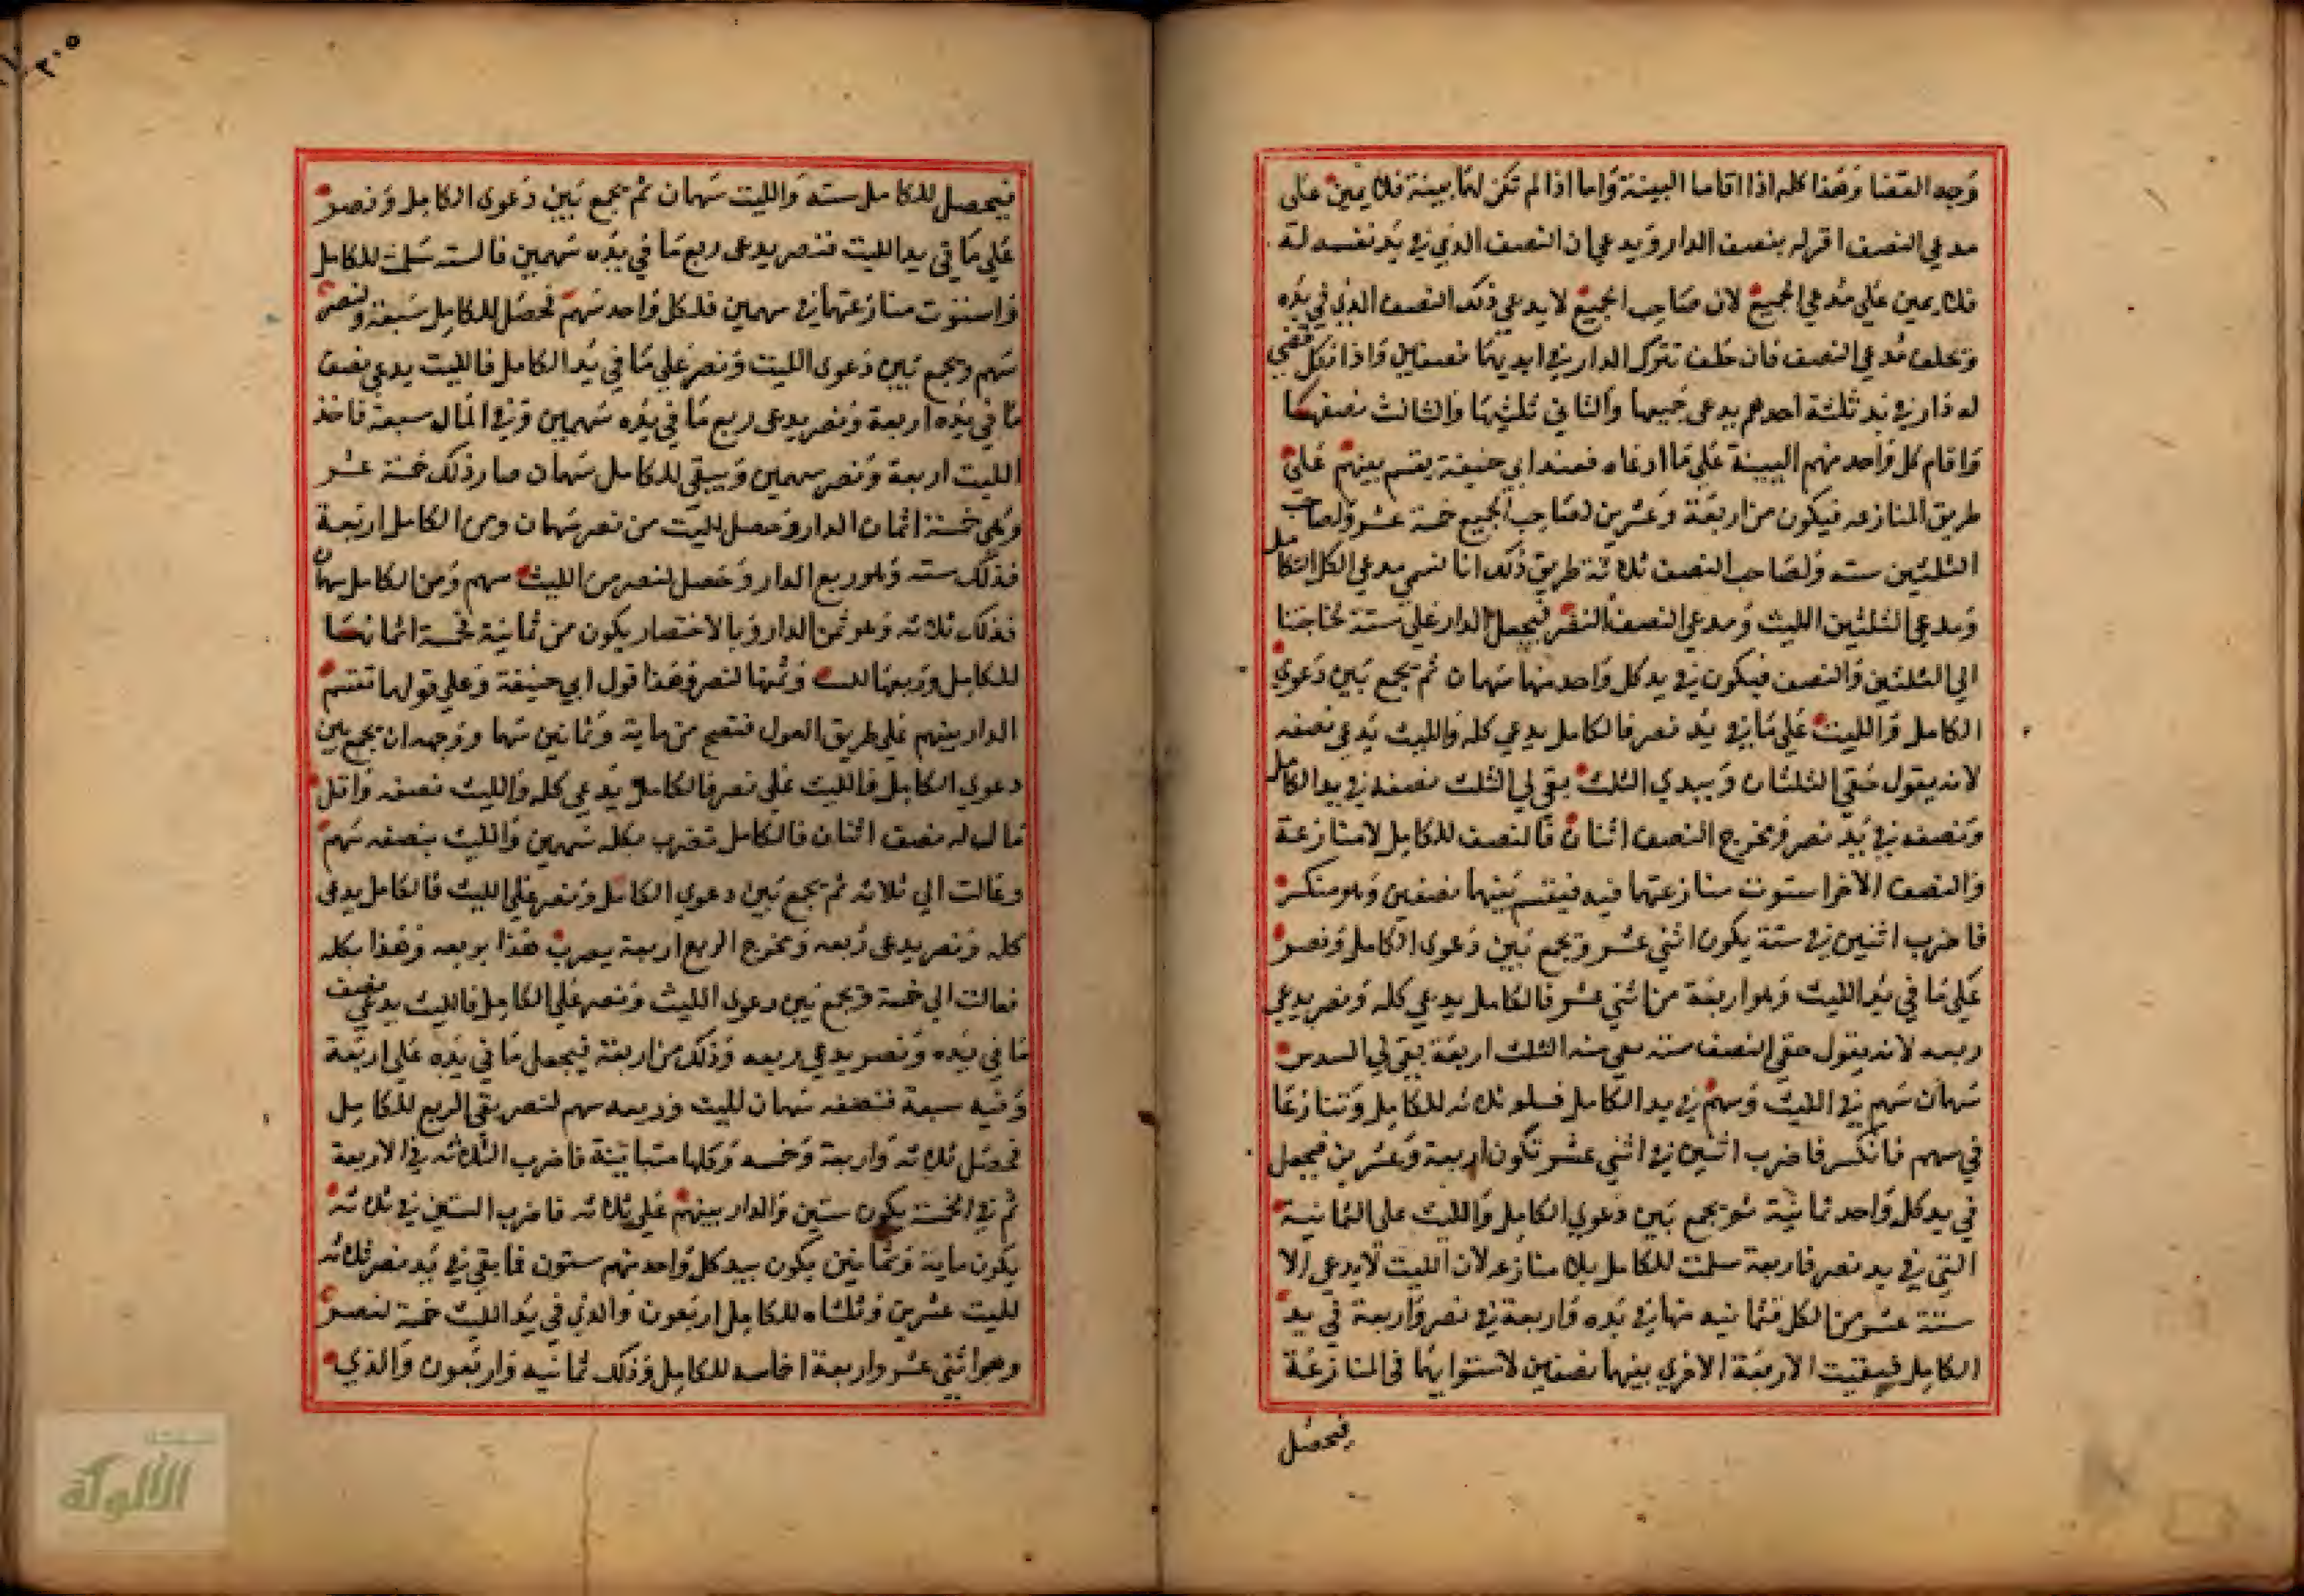 وجه القضا وهذا كله اذا اقاما البينة واما اذا لم تكن لهما بينة فلا يمين على
مدعي النصف اقر له بنصف الدار ويدعي ان النصف الذي في يد نفسه له
فلا يمين علي مدعي الجميع لان صاحب الجميع لا يدعي ذلك النصف الذي في يده
وتحلف مدعي النصف فان حلف تترك الدار في ايديهما نصفاين واذا نكل قضي
له دار في يد ثلثة احدهم يدعى جميعها والثاني ثلثيها والثالث نصفها
واقام كل واحد منهم البينة على ما ادعاه فعند ابي حنيفة يقسم بينهم على
طريق المنازعه فيكون من اربعة وعشرين لصاحب الجميع خمسة عشر ولصاحب
الثلثين سته ولصاحب النصف ثلاثة طريق ذلك انا نسمي مدعي الكل الكامل
ومدعي الثلثين الليث ومدعي النصف النصر فيجعل الدار علي ستة لحاجتنا
الي الثلثين والنصف فيكون في يد كل واحد منها سهمان ثم يجمع بين دعوي
الكامل والليث علي ما في يد نصر فالكامل يدعي كله والليث يدعي نصفه
لانه يقول حقي الثلثان وبيدي الثلث بقي لي الثلث نصفه في يد الكامل
ونصفه في يد نصر ومخرج النصف اثنان فالنصف للكامل لا منازعة
والنصف الاخر استوت منازعتهما فيه فيقسم بينهما نصفين وهو منكسر
فاضرب اثنين في ستة يكون اثني عشر وتجمع بين دعوى الكامل ونصر
علي ما في يد الليث وهو اربعة من اثني عشر فالكامل يدعي كله ونصر يدعي
ربعه لانه يقول حقي النصف سته معي منه الثلث اربعة بقي لي السدس
سهمان سهم في الليث وسهم في يد الكامل فسلم ثلاثه للكامل وتنازعا
في سهم فانكسر فاضرب اثنين في اثني عشر تكون اربعة وعشرين فيجعل
في يد كل واحد ثمانية ثم يجمع بين دعوي الكامل والليث علي الثمانية
التي في يد نصر فاربعة سلمت للكامل بلا منازعه لان الليث لا يدعي الا
ستة عشر من الكل فثمانيه منها في يده واربعة في نصر واربعة في يد
الكامل فبقيت الاربعة الاخري بينهما نصفين لاستوايهما في المنازعة
فيحصل
فيحصل للكامل سته والليث سهمان ثم يجمع بين دعوى الكامل ونصر
علي ما في يد الليث فنصر يدعى ربع ما في يده سهمين فالسته سلمت للكامل
واستوت منازعتهما في سهمين فلكل واحد سهم فحصل للكامل سبعة ولنصر
سهم ويجمع بين دعوى الليث ونصر علي ما في يد الكامل فالليث يدعي نصف
ما في يده اربعة ونصر يدعى ربع ما في يده سهمين وفي المال سبعة فاخذ
الليث اربعة ونصر سهمين ويبقي للكامل سهمان صار ذلك خمسة عشر
وهي خمسة اثمان الدار وحصل لليث من نصر سهمان ومن الكامل اربعة
فذلك سته وهو ربع الدار وحصل لنصر من الليث سهم ومن الكامل سهمان
فذلك ثلاثه وهو ثمن الدار وبالاختصار يكون من ثمانية فخمسة اثمانها
للكامل وربعها لليث وثمنها لنصر وهذا قول ابي حنيفة وعلي قولهما تقسم
الدار بينهم علي طريق العول فتصح من ماية وثمانين سهما ووجهه ان يجمع بين
دعوي الكامل فالليث علي نصر فالكامل يدعي كله والليث نصفه واقل
مال له نصف اثنان فالكامل تضرب بكله سهمين والليث بنصفه سهم
وعالت الي ثلاثه ثم يجمع بين دعوي الكامل ونصر علي الليث فالكامل يدعى
كله ونصر يدعى ربعه ومخرج الربع اربعة يضرب هذا بربعه وهذا بكله
فعالت الي خمسة ويجمع بين دعوى الليث ونصر علي الكامل فالليث يدعي نصف
ما في يده ونصر يدعي ربعه وذلك من اربعة فيجعل ما في يده علي اربعة
وفيه سبعة فنصفه سهمان لليث وربعه سهم لنصر بقي الربع للكامل
فحصل ثلاثه واربعة وخمسه وكلها متباينة فاضرب الثلاثه في الاربعة
ثم في الخمسة يكون ستين والدار بينهم علي ثلاثه فاضرب الستين في ثلاثه
يكون ماية وثمانين يكون بيد كل واحد منهم ستون فما بقي في يد نصر ثلاثه
لليث عشرين وثلثاه للكامل اربعون والذي في يد الليث خمسة لنصر
وهو اثني عشر واربعة اخماسه للكامل وذلك ثمانيه واربعون والذي
الألوكة